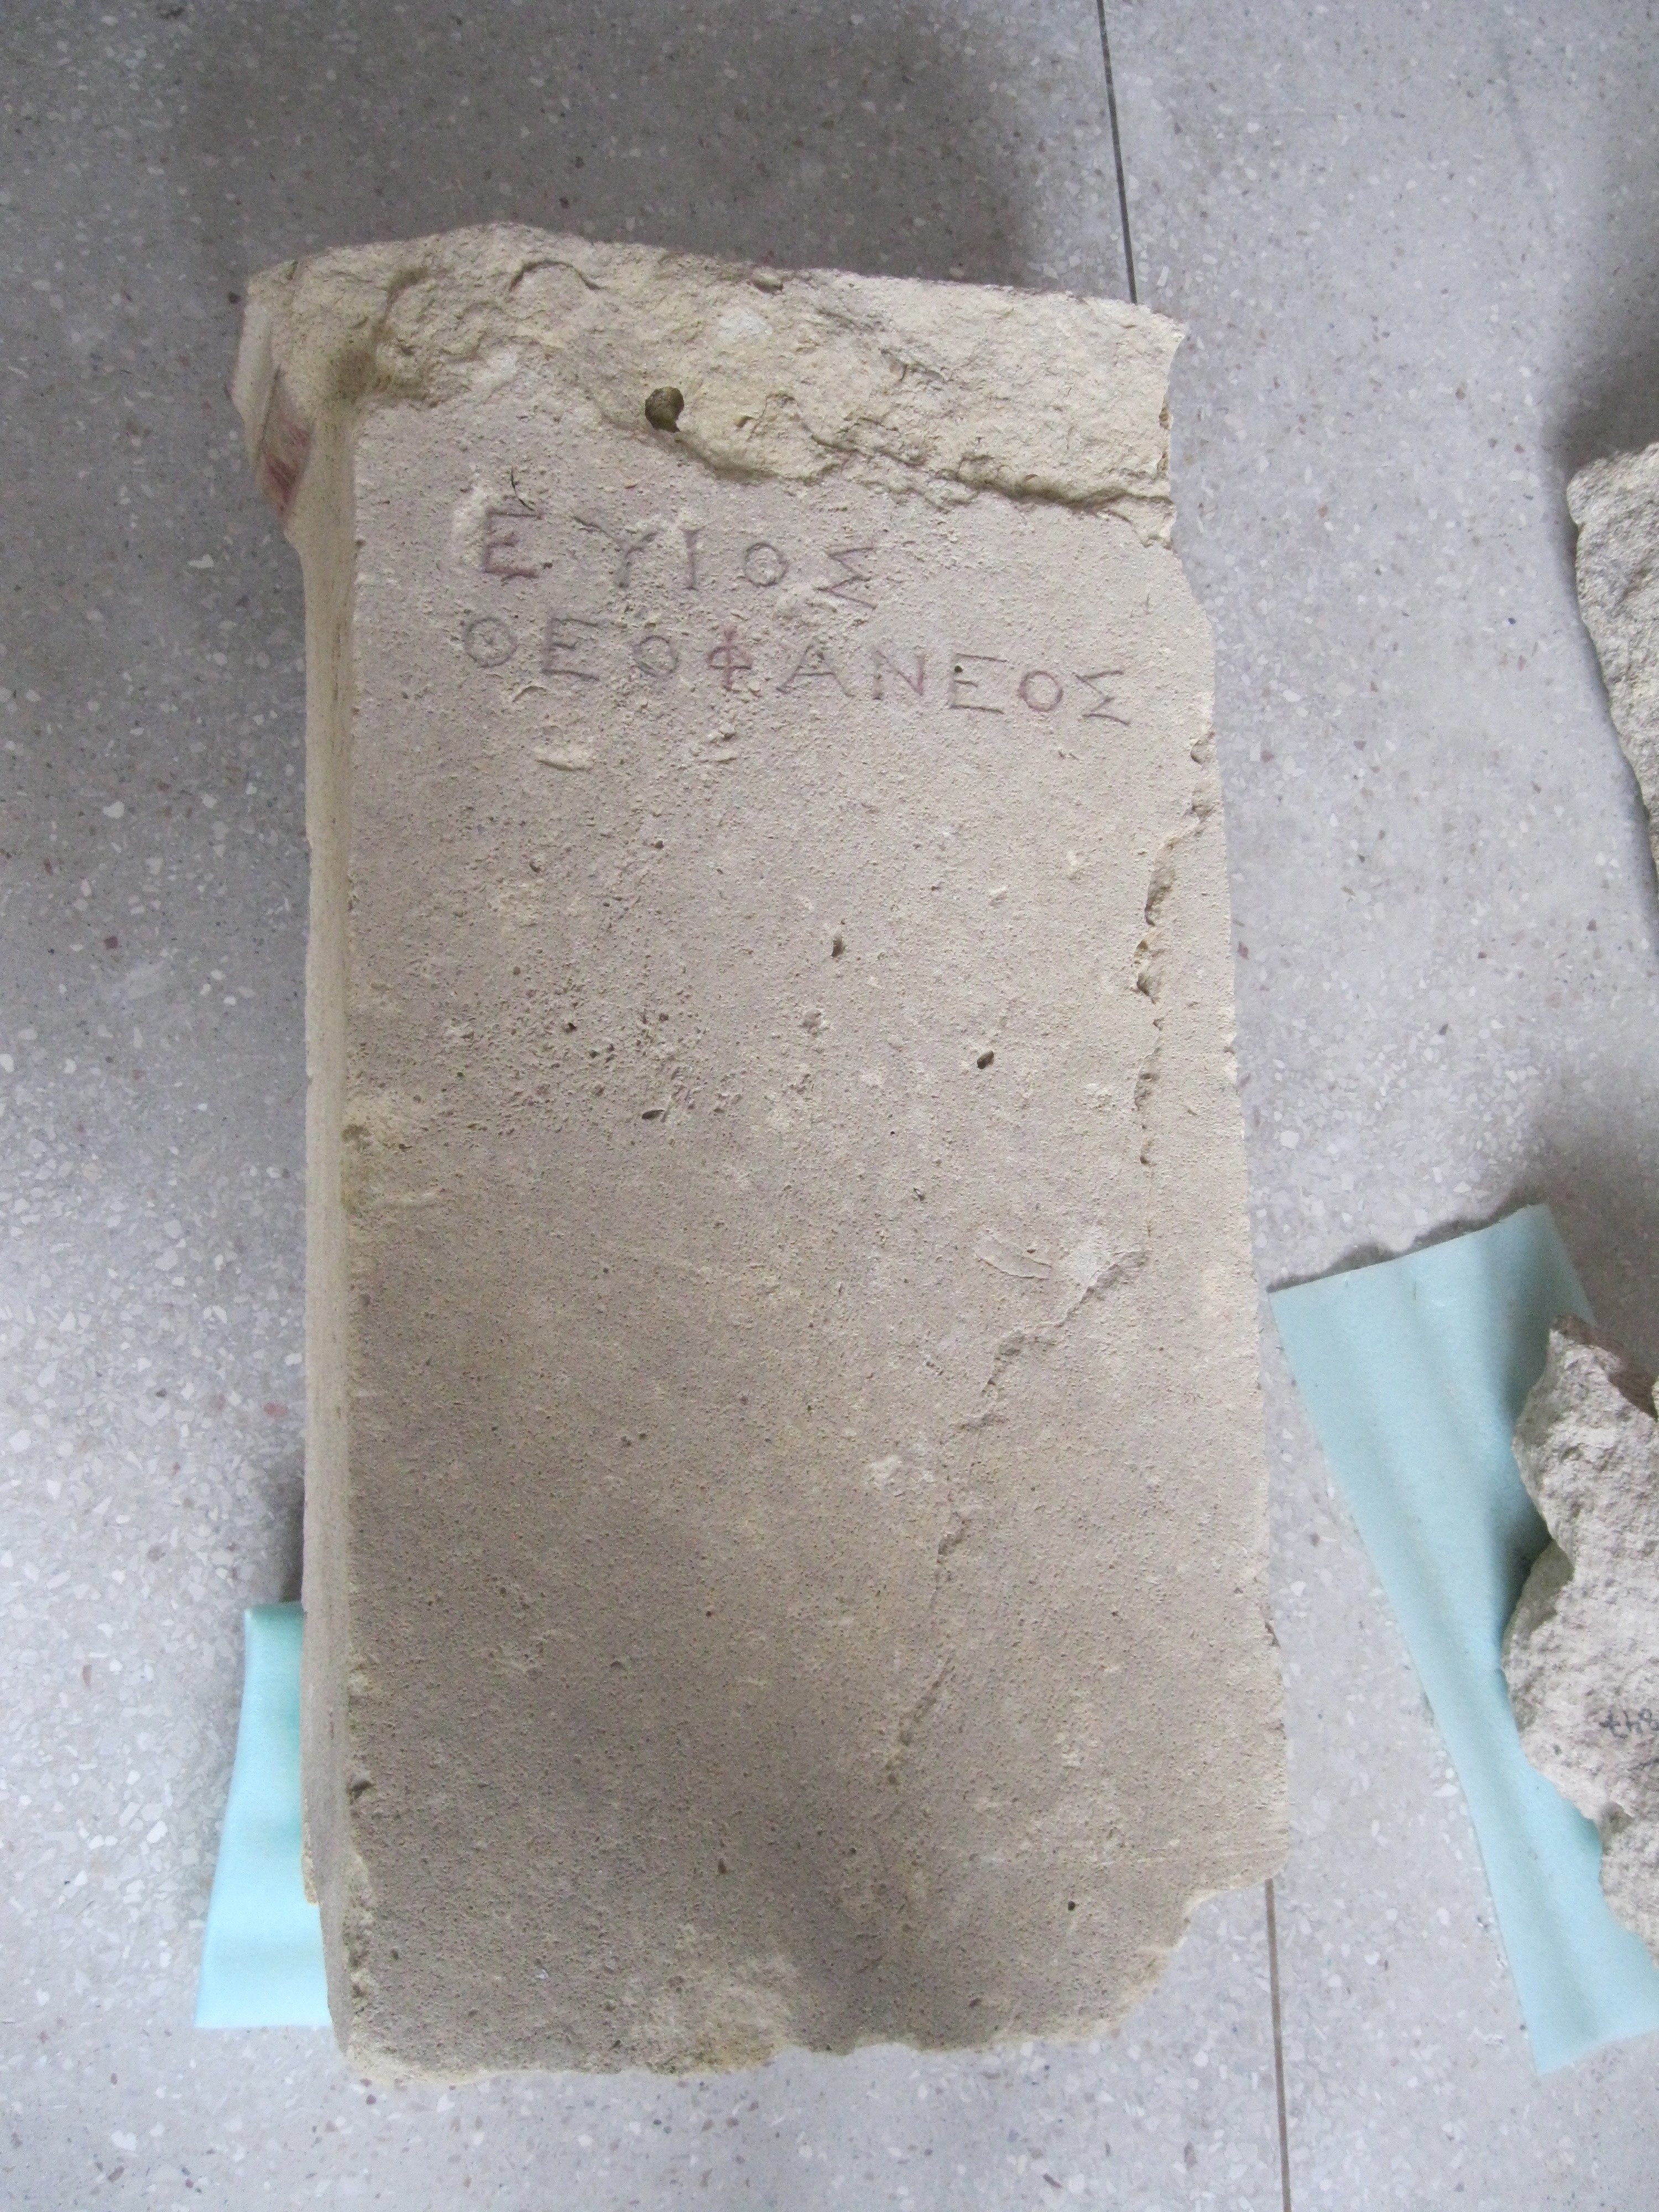 ΕΥΙΟΣ
ΘΕΟΦΑΝΕΟΣ